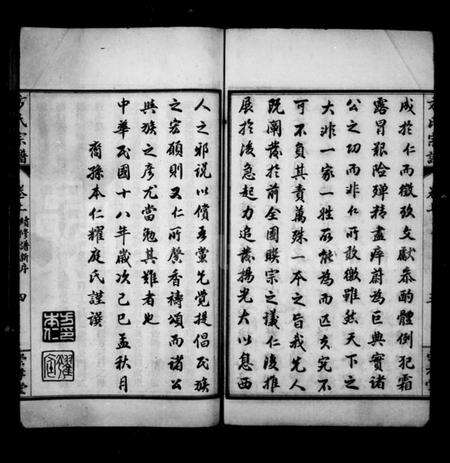 成於仁而徵攷文獻參酌體例犯霜
露冒艱險殫精盡瘁蔚為巨典實諸
公之功而非仁所敢徼雖然天下之
大非一家一姓所能為而匹夫究不
可不負其責萬殊一本之旨我先人
既闡於前全國聯宗之議仁復推
展於後急起力追發揚光大以息西
人之邪說以償吾黨先覺提倡民族
之宏願則又仁所馨香禱頌而諸公
與族之彥尤當勉其難者也
中華民國十八年歲次己巳孟秋月
裔孫本仁耀庭氏謹譔
方氏宗譜 卷一 續修譜新序 四